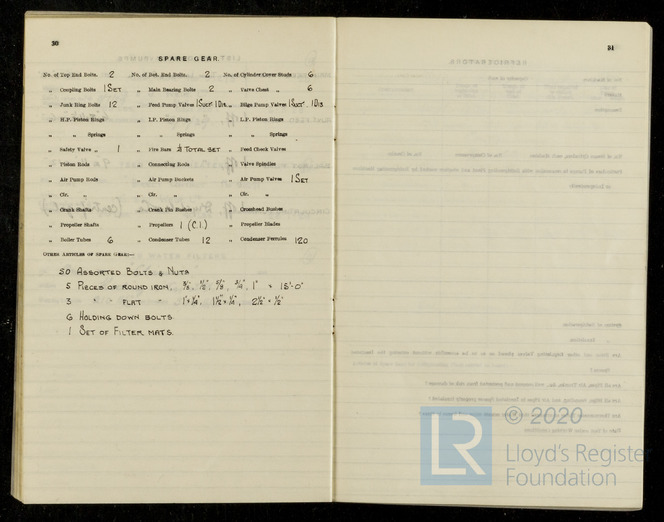 30
SPARE GEAR.
No. of Top End Bolts. 2 No. of Bot. End Bolts. 2 No. of Cylinder Cover Studs 6
„ Coupling Bolts 1 SET „ Main Bearing Bolts 2 „ Valve Chest „ 6
„ Junk Ring Bolts 12 „ Feed Pump Valves 1 SUCT 1 DIS. „ Bilge Pump Valves 1 SUCT. 1 DIS
„ H.P. Piston Rings „ I.P. Piston Rings „ L.P. Piston Rings
„ „ Springs „ „ Springs „ „ Springs
„ Safety Valve „ 1 „ Fire Bars ½ TOTAL SET „ Feed Check Valves
„ Piston Rods „ Connecting Rods „ Valve Spindles
„ Air Pump Rods „ Air Pump Buckets „ Air Pump Valves 1 SET
„ Cir. „ „ Cir. „ „ Cir. „
„ Crank Shafts „ Crank Pin Bushes „ Crosshead Bushes
„ Propeller Shafts „ Propellers 1 (C.I.) „ Propeller Blades
„ Boiler Tubes 6 „ Condenser Tubes 12 „ Condenser Ferrules 120
OTHER ARTICLES OF SPARE GEAR:—
50 ASSORTED BOLTS & NUTS
5 PIECES OF ROUND IRON, ⅜, ½", ⅝", ¾", 1" × 15'-0"
3 " " FLAT " 1"×¼", 1½"×¼", 2½"×½"
6 HOLDING DOWN BOLTS.
1 SET OF FILTER MATS.
31
© 2020
LR
Lloyd's Register
Foundation